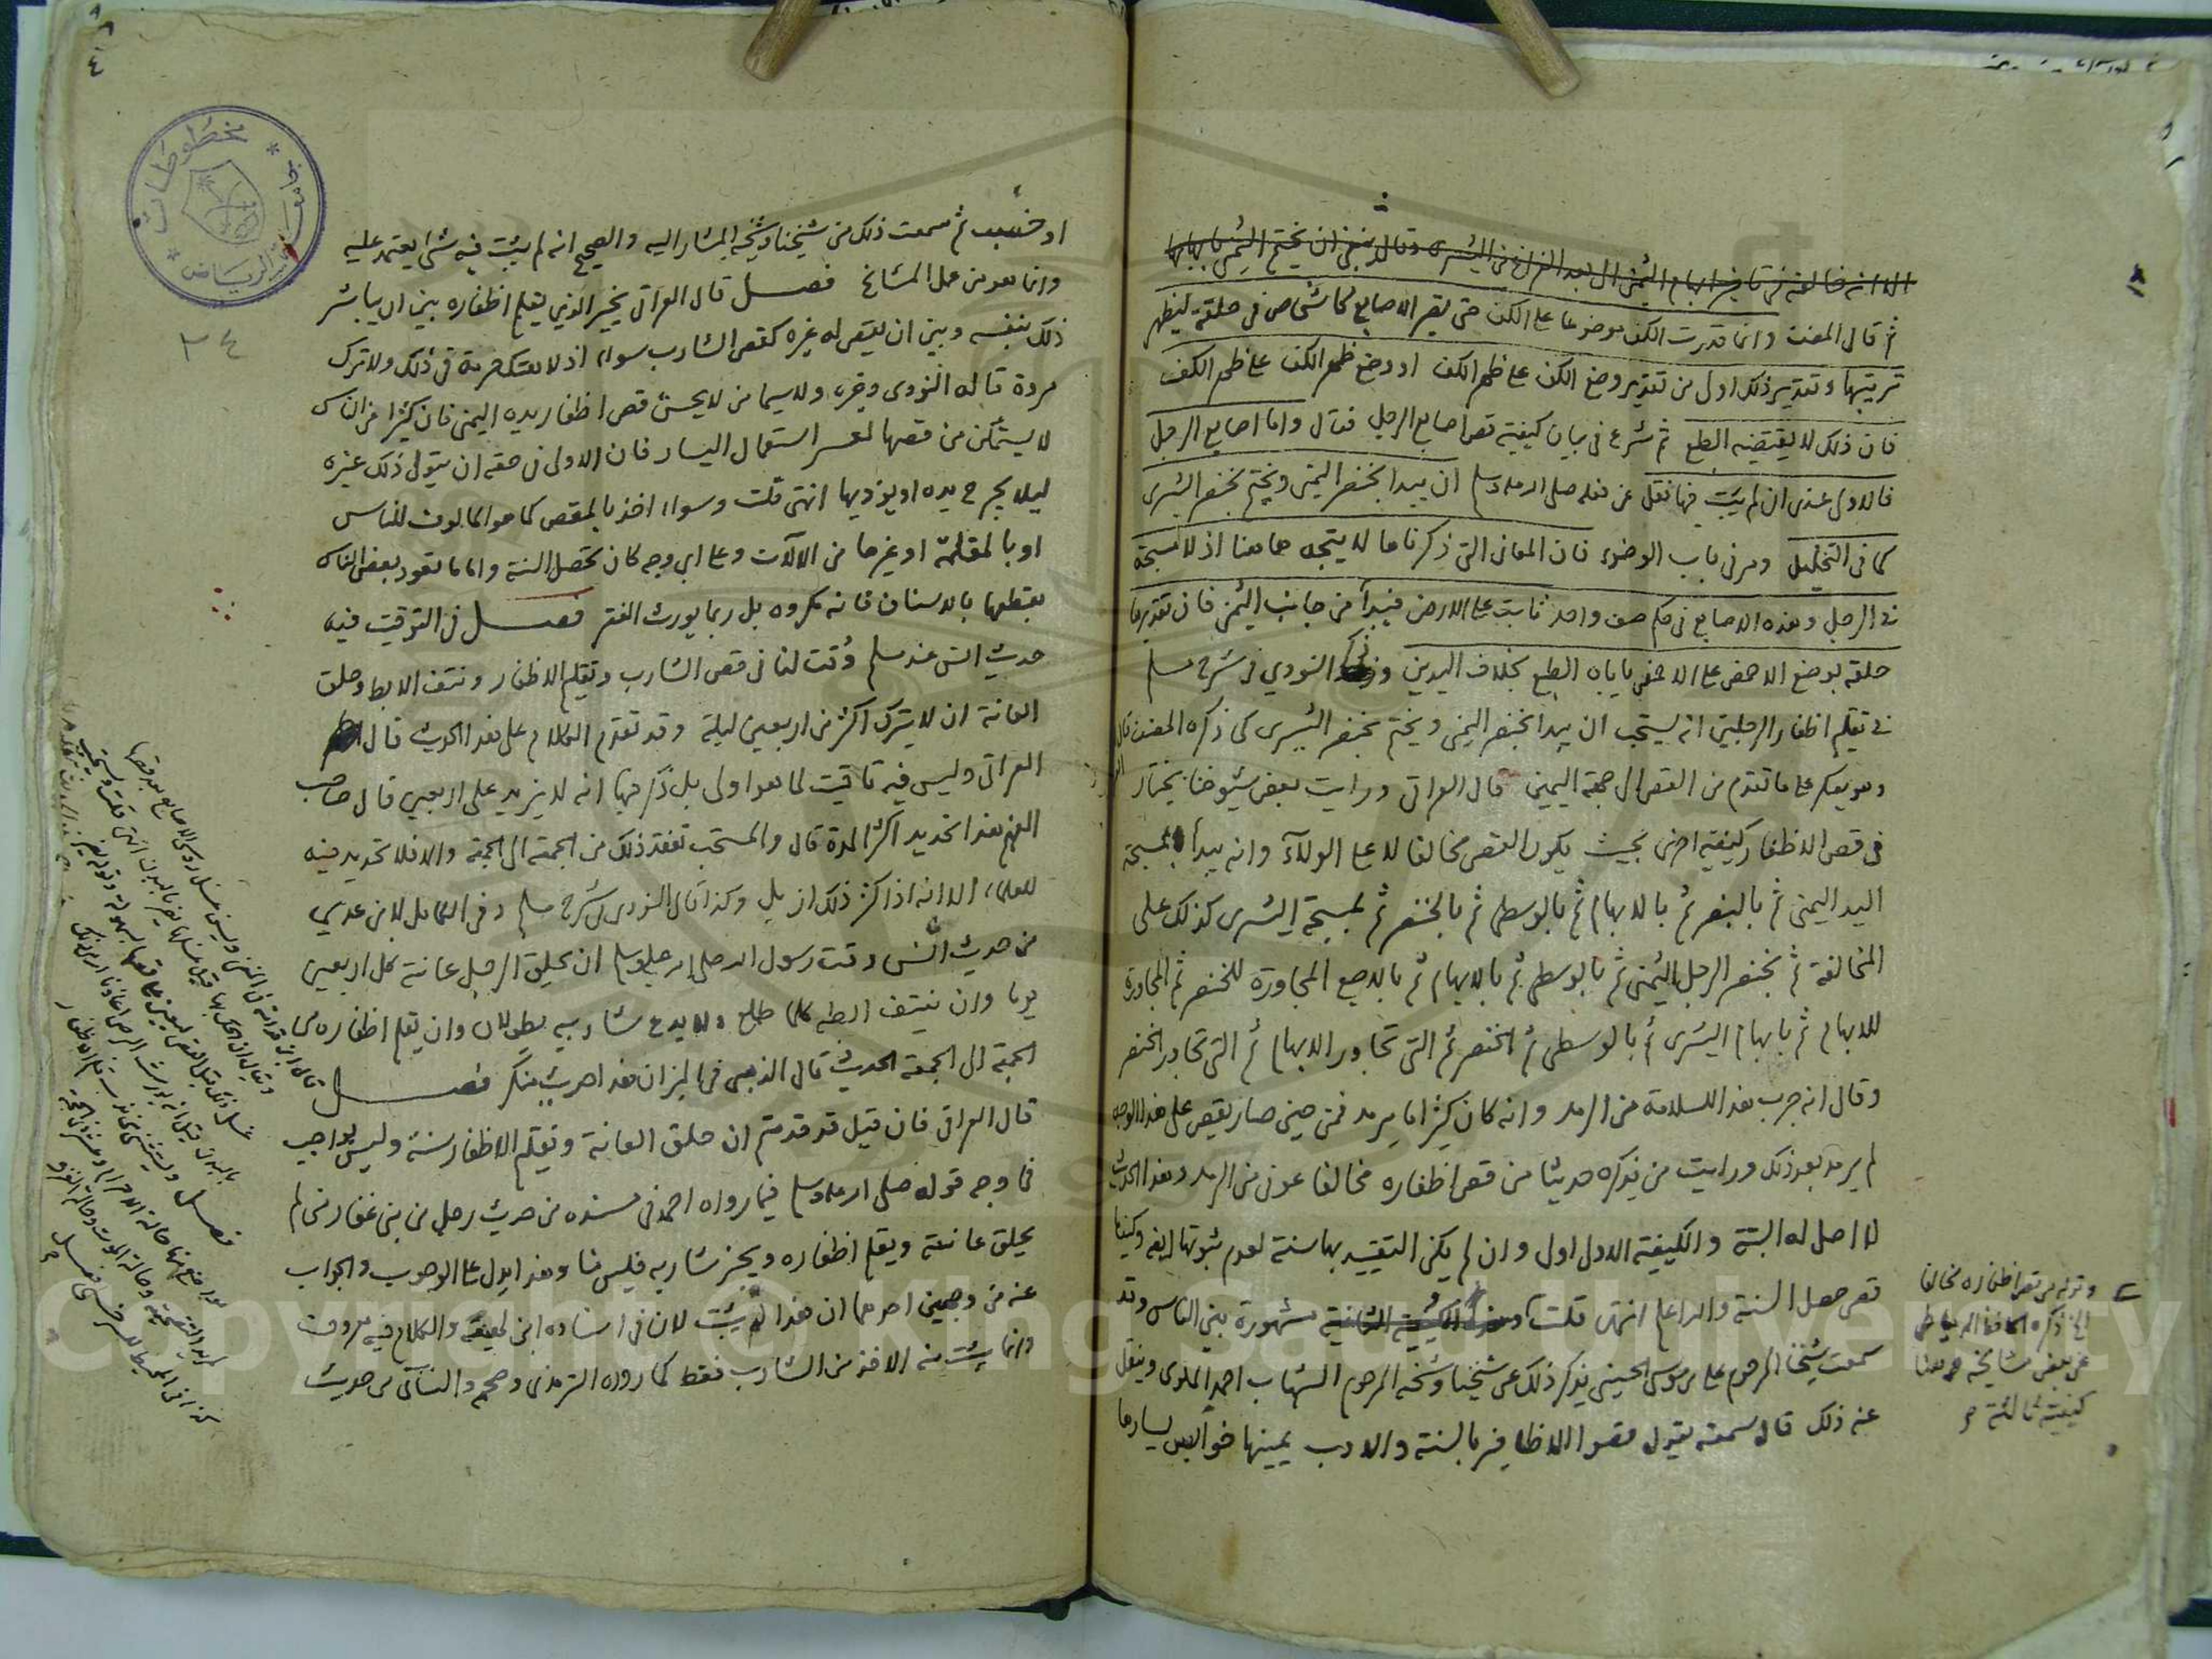 الا انه خالفه في تاخير ابهام اليمنى الى بعد الفراغ من اليسرى وقال ينبغي ان يختم اليمنى بابهامها
ثم قال المصنف وانما قدرت الكف موضوعا على الكف حتى تصير الاصابع كاشخاص في حلقة ليظهر
ترتيبها وتقدير ذلك اولى من تقدير وضع الكف على ظهر الكف او وضع ظهر الكف على ظهر الكف
فان ذلك لا يقتضيه الطبع ثم شرع في بيان كيفية قص اصابع الرجل فقال واما اصابع الرجل
فالاولى عندي ان لم يثبت فيها نقل عن فعله صلى الله عليه وسلم ان يبدا بخنصر اليمنى ويختم بخنصر اليسرى
كما في التخليل ومر في باب الوضوء فان المعاني التي ذكرناها لا يتجه هاهنا اذ لا مسبحة
في الرجل وهذه الاصابع في حكم صف واحد ثابت على الارض فيبدأ من جانب اليمنى فان تقديرها
حلقة بوضع الاخمص على الاخمص ياباه الطبع بخلاف اليدين وذكر النووي في شرح مسلم
في تقليم اظفار الرجلين انه يستحب ان يبدا بخنصر اليمنى ويختم بخنصر اليسرى كما ذكره المصنف قال
وهو يعكر على ما تقدم من القص الى جهة اليمين قال العراقي ورايت بعض شيوخنا يختار
في قص الاظفار كيفية اخرى بحيث يكون القص مخالفا لا على الولاء وانه يبدا بمسبحة
اليد اليمنى ثم بالبنصر ثم بالابهام ثم بالوسطى ثم بالخنصر ثم بمسبحة اليسرى كذلك على
المخالفة ثم بخنصر الرجل اليمنى ثم بالوسطى ثم بالابهام ثم بالاصبع المجاورة للخنصر ثم المجاورة
للابهام ثم بابهام اليسرى ثم بالوسطى ثم الخنصر ثم التي تجاور الابهام ثم التي تجاور الخنصر
وقال انه جرب هذا للسلامة من الرمد وانه كان كثيرا ما يرمد فمن حين صار يقص على هذا الوجه
لم يرمد بعد ذلك ورايت من يذكره حديثا من قص اظفاره مخالفا عوفي من الرمد وهذا الحديث
لا اصل له البتة والكيفية الاولى اولى وان لم يكن التقييد بها سنة لعدم ثبوتها ايضا وكيفما
قص حصل السنة والله اعلم انتهى قلت وهذه الكيفية الثانية مشهورة بين الناس وقد
سمعت شيخنا المرحوم علي بن موسى الحسيني يذكر ذلك عن شيخنا وشيخه المرحوم الشهاب احمد الملوي وينقل
عنه ذلك قال سمعته يقول قصوا الاظافير بالسنة والادب يمينها خوابس يسارها
وقوله من قص اظفاره مخالفا
الخ ذكره الحافظ الدمياطي
عن بعض مشايخه
او خسب ثم سمعت ذلك من شيخنا وشيخه المشار اليه والصحيح انه لم يثبت فيه شئ يعتمد عليه
وانما هو من عمل المشائخ فصل قال العراقي يخير الذي يقلم اظفاره بين ان يباشر
ذلك بنفسه وبين ان يقص له غيره كقص الشارب سواء اذ لا هتك حرمة في ذلك ولا ترك
مروة قاله النووي وغيره ولا سيما من لا يحسن قص اظفار يده اليمنى فان كثيرا من الناس
لا يتمكن من قصها لعسر استعمال اليسار فان الاولى في حقه ان يتولى ذلك غيره
ليلا يجرح يده او يؤذيها انتهى قلت وسواء اخذ بالمقص كما هو المالوف للناس
او بالمقلمة او غيرها من الالات وعلى اي وجه كان تحصل السنة واما ما تعود بعض الناس
بقطعها بالاسنان فانه مكروه بل ربما يورث الفقر فصل في التوقيت فيه
حديث انس عند مسلم وقت لنا في قص الشارب وتقليم الاظفار ونتف الابط وحلق
العانة ان لا يترك اكثر من اربعين ليلة وقد تقدم الكلام على هذا الحديث قال
العراقي وليس فيه تاقيت لما هو اولى بل ذكر فيها انه لا يزيد على اربعين قال صاحب
المفهم هذا تحديد اكثر المدة قال والمستحب تفقد ذلك من الجمعة الى الجمعة والا فلا تحديد فيه
للعلماء الا انه اذا كثر ذلك ازيل وكذا قال النووي في شرح مسلم وفي الكامل لابن عدي
من حديث انس وقت رسول الله صلى الله عليه وسلم ان يحلق الرجل عانته كل اربعين
يوما وان ينتف ابطه كلما طلع ولا يدع شاربيه يطولان وان يقلم اظفاره من
الجمعة الى الجمعة الحديث قال الذهبي في الميزان هذا حديث منكر فصل
قال العراقي فان قيل قد قدمتم ان حلق العانة وتقليم الاظفار سنة وليس بواجب
فما وجه قوله صلى الله عليه وسلم فيما رواه احمد في مسنده من حديث رجل من بني غفار من لم
يحلق عانته ويقلم اظفاره ويجز شاربه فليس منا وهذا يدل على الوجوب والجواب
عنه من وجهين احدهما ان هذا لم يثبت لان في اسناده ابن لهيعة والكلام فيه معروف
وانما يثبت منه الاخذ من الشارب فقط كما رواه الترمذي وصححه والنسائي من حديث
مخطوطات
الرياض
٣٤